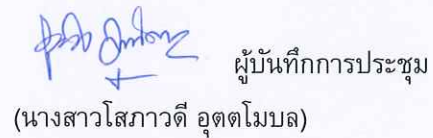 ผู้บันทึกการประชุม
(นางสาวโสภาวดี อุตตโมบล)